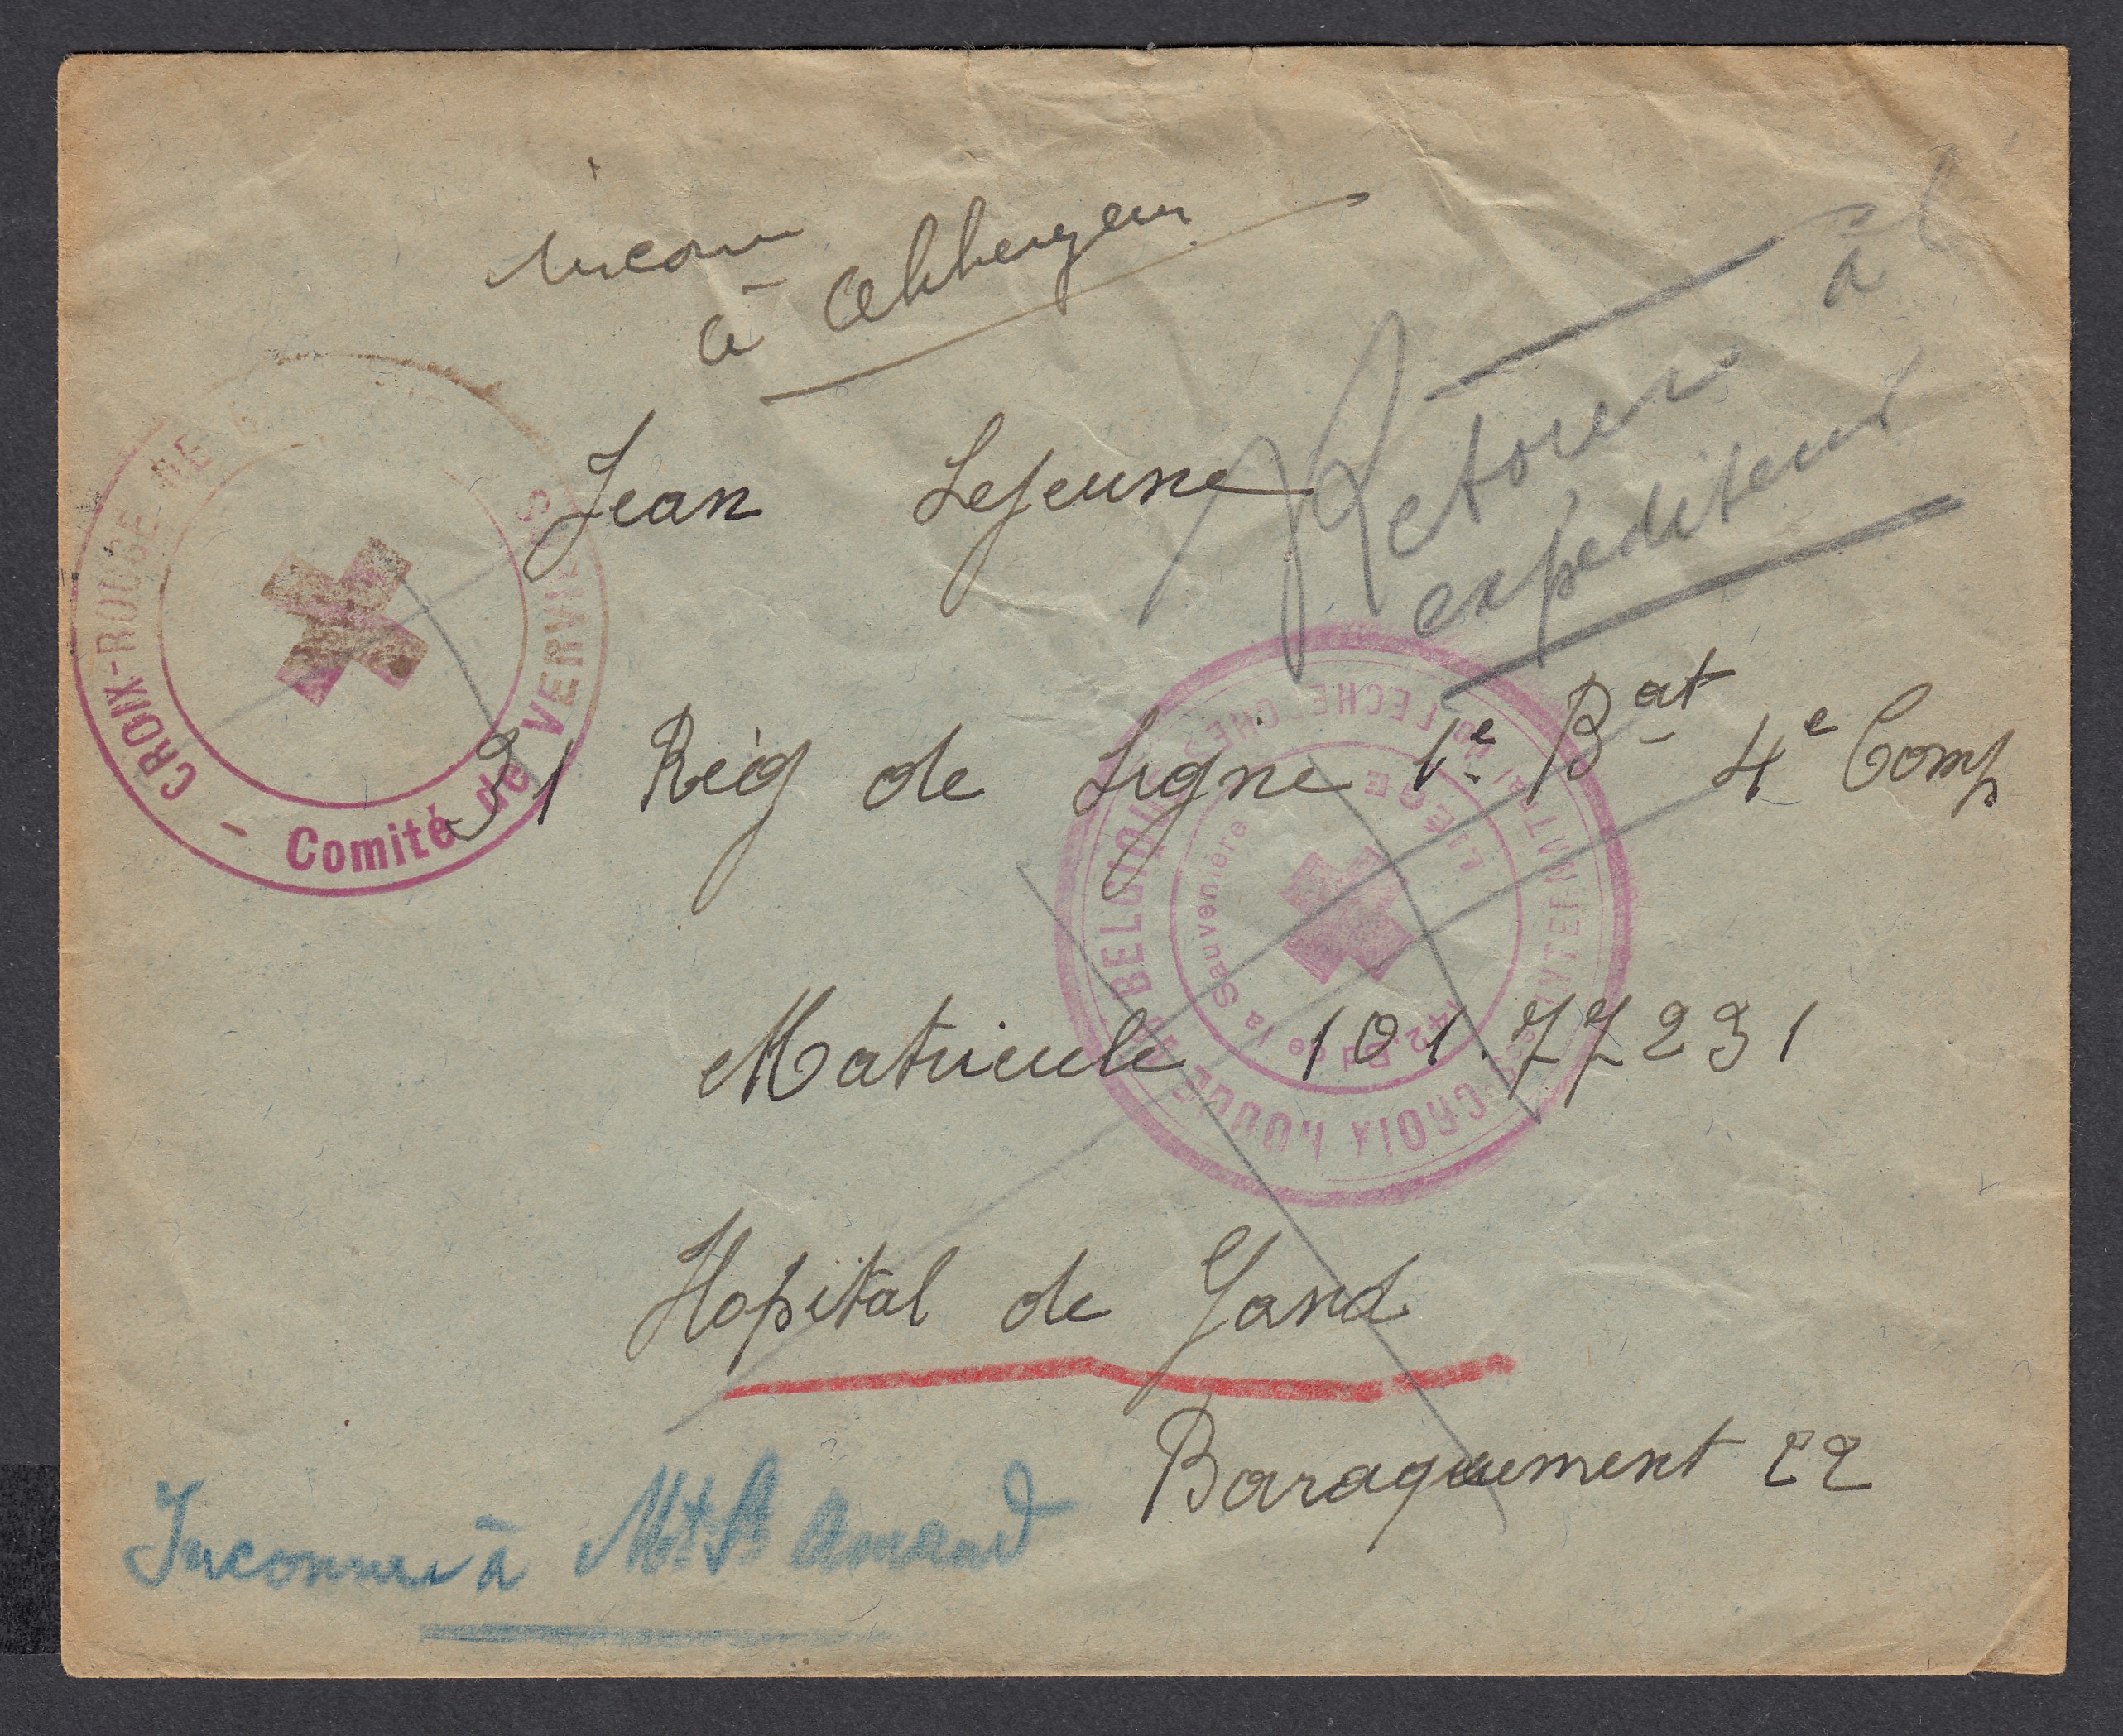 Inconnu
à
Retour à l
expéditeur
Jean Lejeune
31 Rég de Ligne 1e Bat 4e Comp
Matricule 101.77231
Hopital de Gand
Baraquement 22
Inconnu à Mt St Amand
CROIX-ROUGE DE
Comité de VERVIERS
CROIX ROUGE DE BELGIQUE
RECHERCHES
LIEGE
42 Bd de la Sauvenière